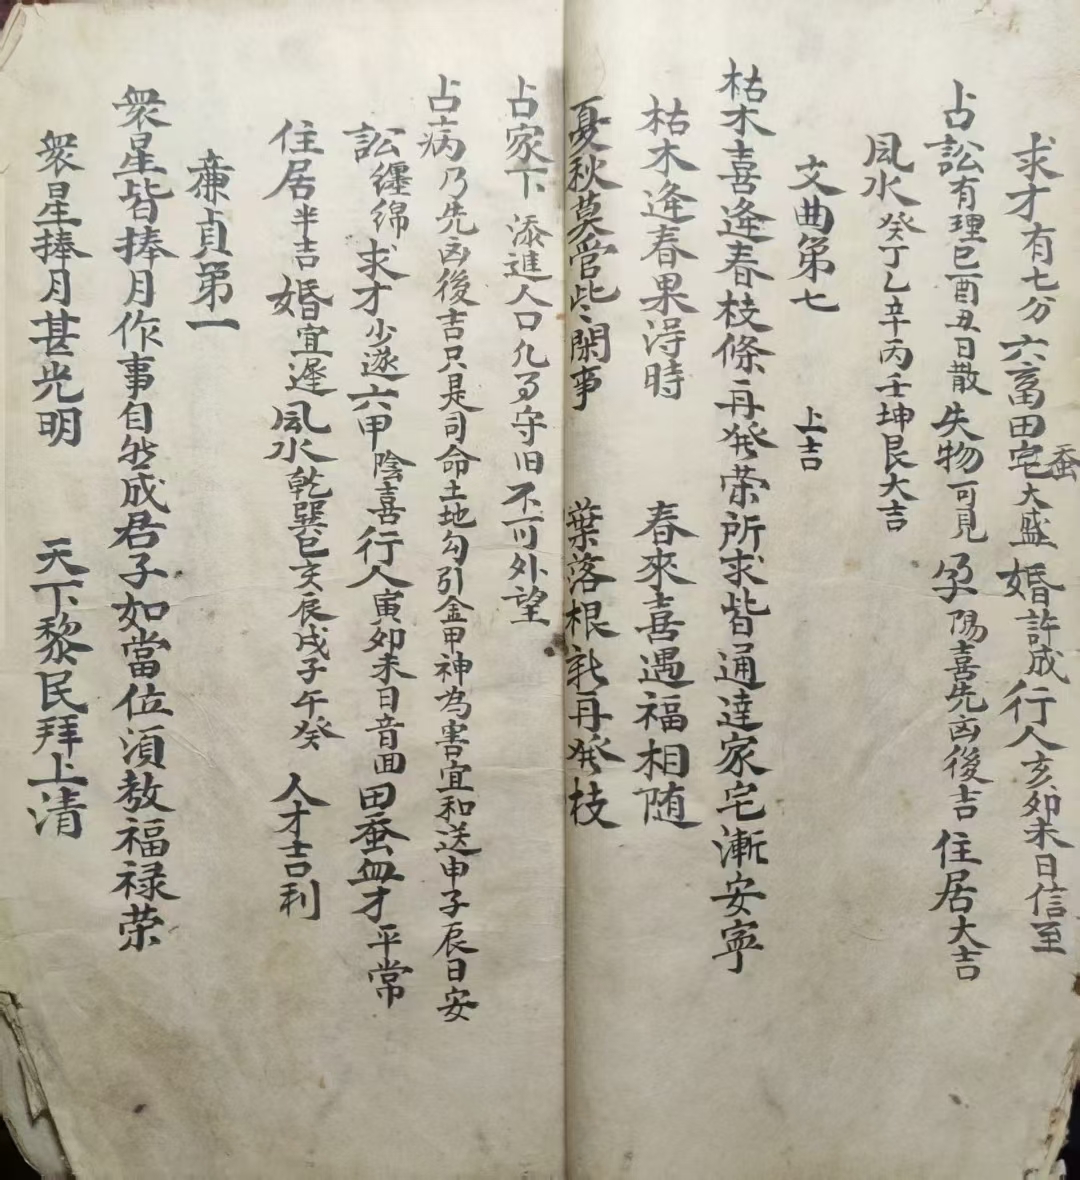 求才有七分六畜田宅蚕大盛婚許成行人亥卯未日信至
占訟有理巳酉丑日散失物可見孕陽喜先凶後吉住居大吉
風水癸丁乙辛丙壬坤艮大吉
文曲第七 上吉
枯木喜逢春枝條再發荣所求皆通達家宅漸安寧
枯木逢春果淂時 春來喜遇福相随
憂秋莫管些閑事 葉落根新再發枝
占家下添進人口凡事守旧不可外望
占病乃先凶後吉只是司命土地勾引金甲神為害宜和送申子辰日安
訟纏綿求才少遂六甲陰喜行人寅卯未日音回田蚕血才平常
住居半吉婚宜遲風水乾巽巳亥辰戌子午癸 人才吉利
廉貞第一
衆星皆捧月作事自然成君子如當位須教福禄荣
衆星捧月甚光明 天下黎民拜上清